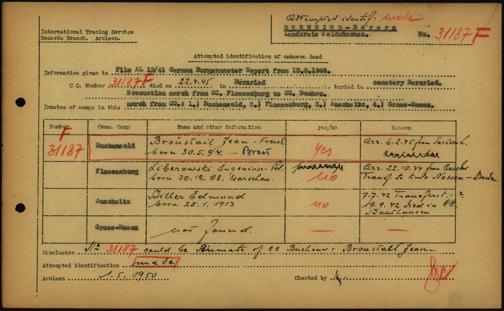 Attempted identif: made
International Tracing Service
Records Branch. Arolsen.
No. 31187 F
Attempted identification of unknown dead
Information given in File AL 12/41 German Burgomaster Report from
C.C. No. 31187 F died on 22.4.45 in Bernried buried in cemetery Bernried.
Evacuation march from CC. Flossenburg to CC. Dachau.
Inmates of camps in this march from CC: 1.) Buchenwald, 2.) Flossenburg, 3.) Auschwitz, 4.) Gross-Rosen.
Number Conc. Camp Name and other information yes/no reason
F 31187 Buchenwald Broustall Jean - French yes Arr. 6.2.45 from
born 30.5.94. -
Flossenburg Liberowski Eugeniusz - Pol. no Arr. 22.10.44 from
born 30.12.08. Warschau. Transf. to
Auschwitz Edmund no 7.7.42 Transport
born 25.1.1913 19.9.42 Died in CC
Mauthausen
Gross-Rosen not found.
Conclusion No 31187 could be inmate of CC Buchenw: Broustall Jean
Attempted identification made
Arolsen 1.5.1950 Checked by